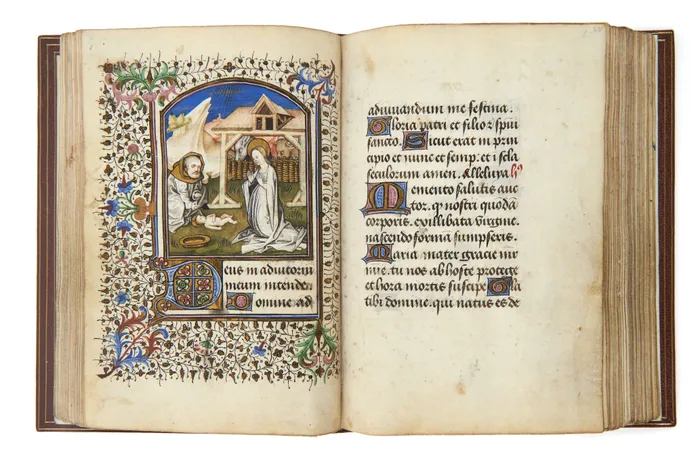 eus in adiutorim
meum intende.
omine ad
adiuuandum me festina.
Gloria patri et filio et spiui
sancto. Sicut erat in prin
cipio et nunc et semp. et i scla
seculorum amen. Alleluya
Memento salutis auc
tor. q nostri quoda
corporis. ex illibata virgine.
nascendo forma sumpseris.
Maria mater gracie mr
mie. tu nos ab hoste protege
et hora mortis suscipe Gla
tibi domine. qui natus es de